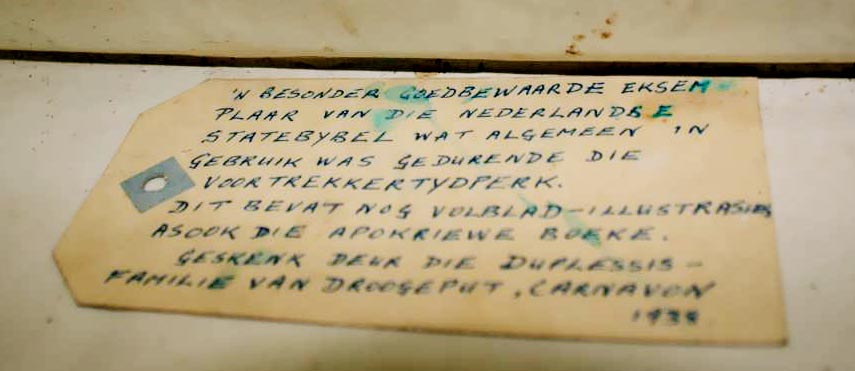 'N BESONDER GOEDBEWAARDE EKSEM
PLAAR VAN DIE NEDERLANDSE
STATEBYBEL WAT ALGEMEEN IN
GEBRUIK WAS GEDURENDE DIE
VOORTREKKERTYDPERK.
DIT BEVAT NOG VOLBLAD-ILLUSTRASIES
ASOOK DIE APOKRIEWE BOEKE.
GESKENK DEUR DIE DUPLESSIS-
FAMILIE VAN DROOGEPUT, CARNAVON